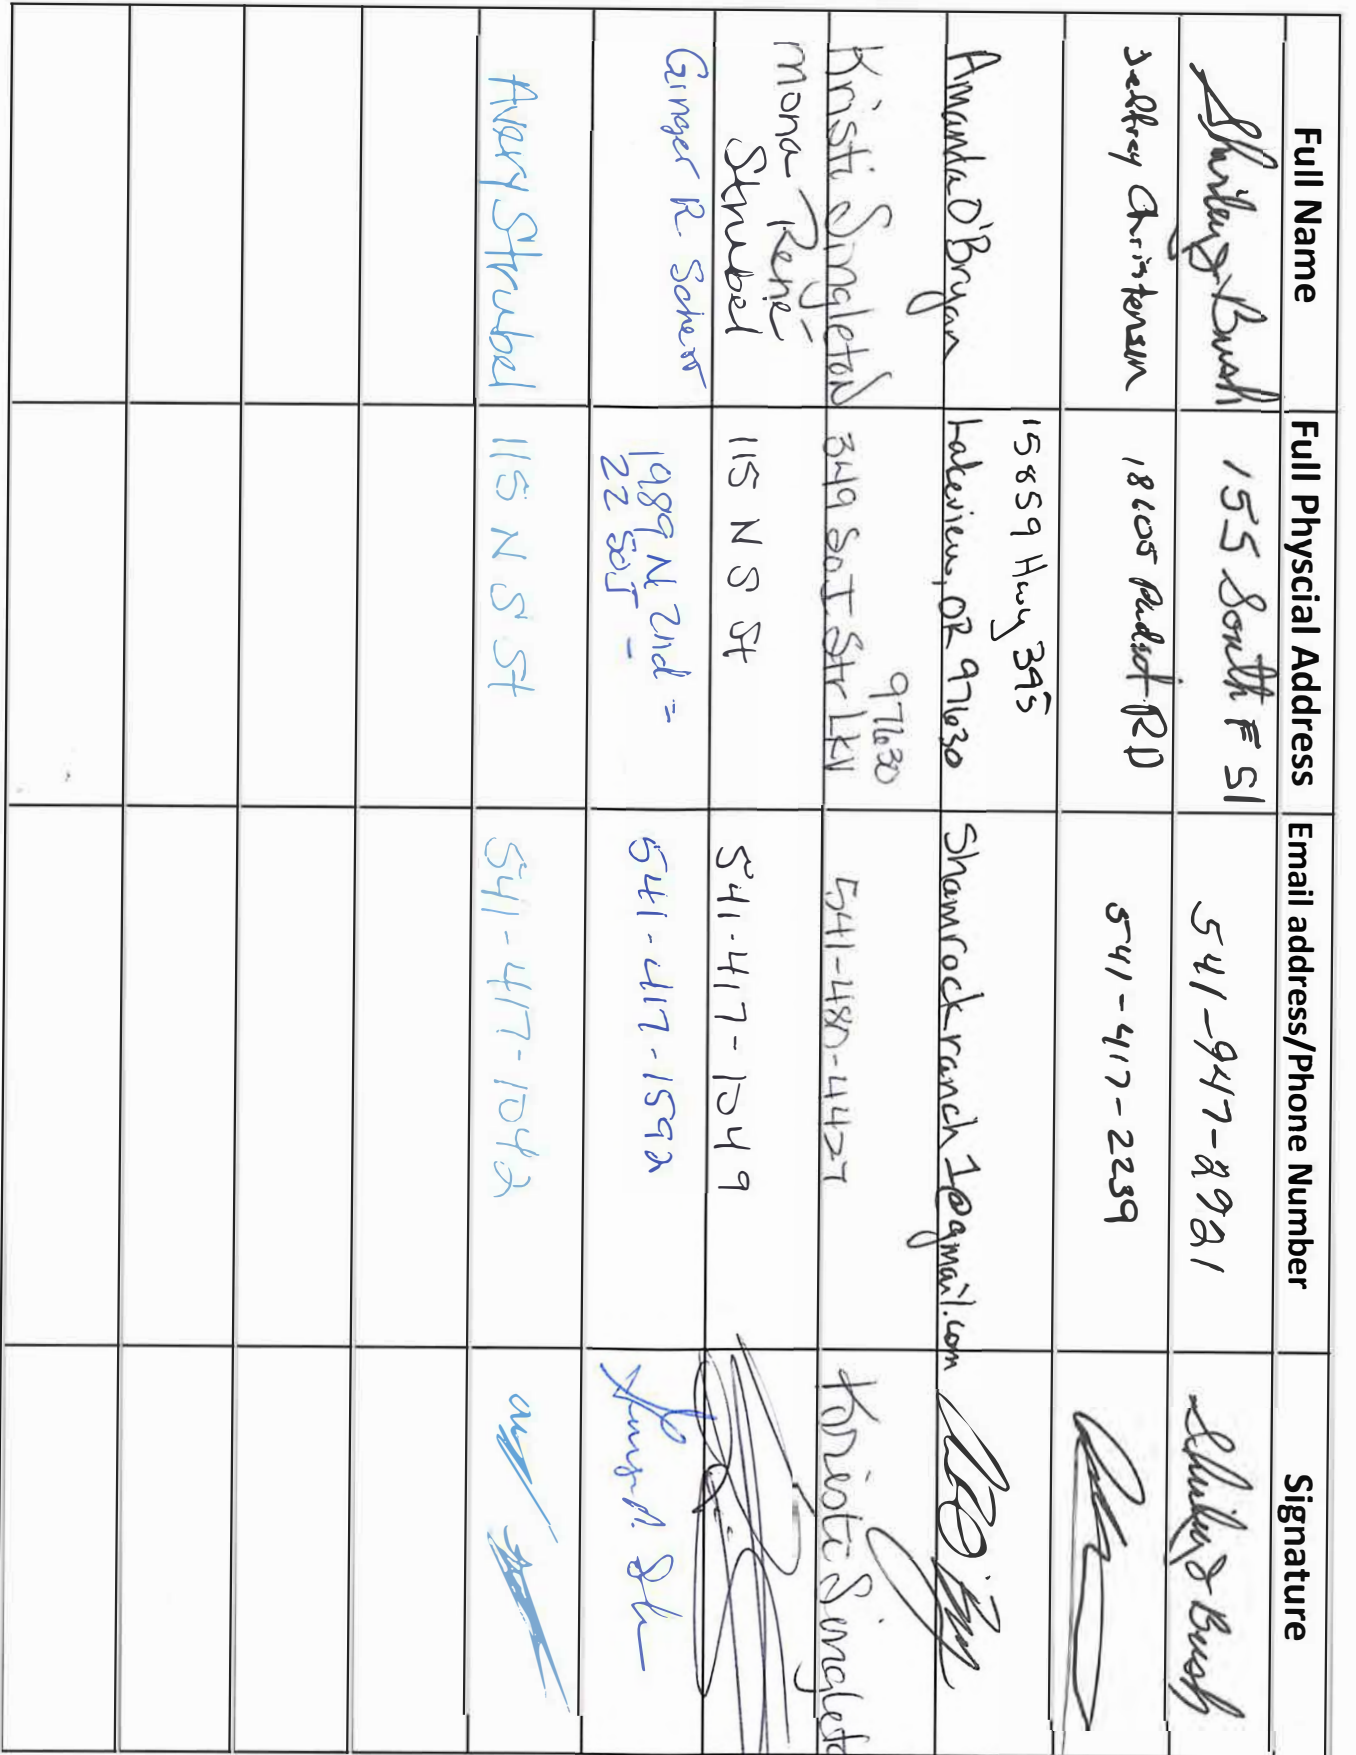 Full Name Full Physcial Address Email address/Phone Number Signature
Shirley Bush 155 South F St 541-947-2921 Shirley Bush
Jeffrey Christensen 18605 RD 541-417-2239
15859 Hwy 395
Amanda O'Bryan Lakeview, OR 97630 Shamrockranch1@gmail.com
97630
Kristi Singleton 349 So I Str LKV 541-480-4427 Kristi Singleto
Mona René
Strubel 115 N S St 541-417-1049
Ginger R. 1989 N 2nd = 541-417-1592
22
Avery Strubel 115 N S St 541-417-1042